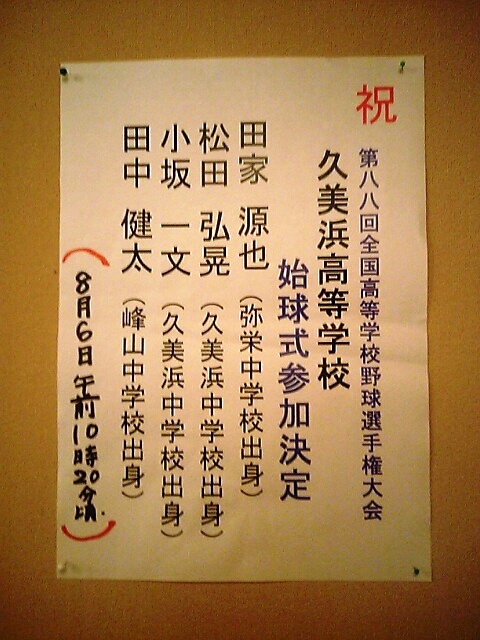 祝
第八八回全国高等学校野球選手権大会
久美浜高等学校
始球式参加決定
田家 源也（弥栄中学校出身）
松田 弘晃（久美浜中学校出身）
小坂 一文（久美浜中学校出身）
田中 健太（峰山中学校出身）
（8月6日 午前10時20分頃.）